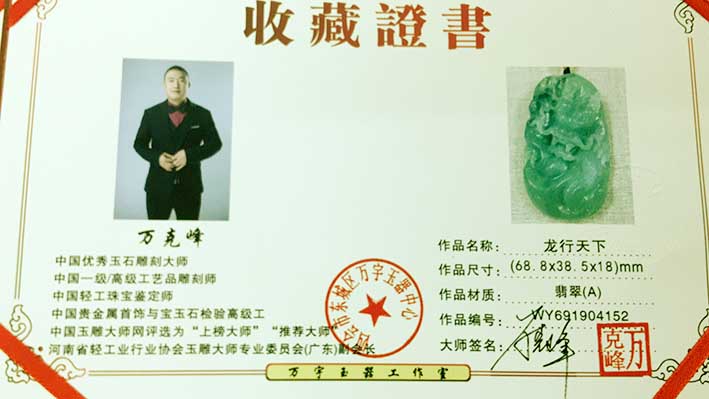 收藏證書
万克峰
中国优秀玉石雕刻大师
中国一级/高级工艺品雕刻师
中国轻工珠宝鉴定师
中国贵金属首饰与宝玉石检验高级工
中国玉雕大师网评选为“上榜大师”“推荐大师”
•河南省轻工业行业协会玉雕大师专业委员会(广东)副会长
作品名称：龙行天下
作品尺寸：(68.8x38.5x18)mm
作品材质：翡翠(A)
作品编号：WY691904152
大师签名：
万克峰
四会市东城区万宇玉器中心
万宇玉器工作室